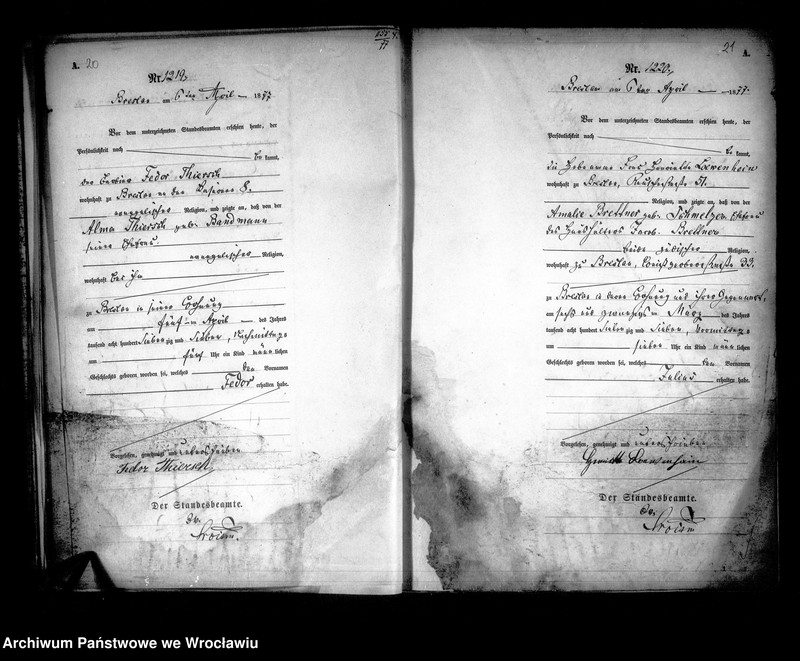 A. 20
Nr. 1219.
Breslau am 6ten April 1877
Vor dem unterzeichneten Standesbeamten erschien heute, der
Persönlichkeit nach be kannt,
der Fedor Thiersch
wohnhaft zu Breslau an der 8.
evangelischer Religion, und zeigte an, daß von der
Alma Thiersch geb. Bandmann
seiner Ehefrau
evangelischer Religion,
wohnhaft bei ihm
zu Breslau in seiner Wohnung
am fünften April des Jahres
tausend acht hundert siebenzig und sieben, Nachmittags
um fünf Uhr ein Kind männlichen
Geschlechts geboren worden sei, welches den Vornamen
Fedor erhalten habe.
Vorgelesen, genehmigt und unterschrieben
Fedor Thiersch
Der Standesbeamte.
21 A.
Nr. 1220.
Breslau am 6ten April 1877.
Vor dem unterzeichneten Standesbeamten erschien heute, der
Persönlichkeit nach be kannt,
die Hebamme Frau Henriette Loewenhein
wohnhaft zu Breslau, Reuschestraße 51.
Religion, und zeigte an, daß von der
Amalie Brettner geb. Schmelzer, Ehefrau
des Haushälters Jacob Brettner
beide jüdischer Religion,
wohnhaft zu Breslau, 33.
zu Breslau in deren Wohnung und ihrer Gegenwart,
am sechs und zwanzigsten März des Jahres
tausend acht hundert siebenzig und sieben, Vormittags
um sieben Uhr ein Kind männlichen
Geschlechts geboren worden sei, welches den Vornamen
Julius erhalten habe.
Vorgelesen, genehmigt und unterschrieben
Der Standesbeamte.
Archiwum Państwowe we Wrocławiu